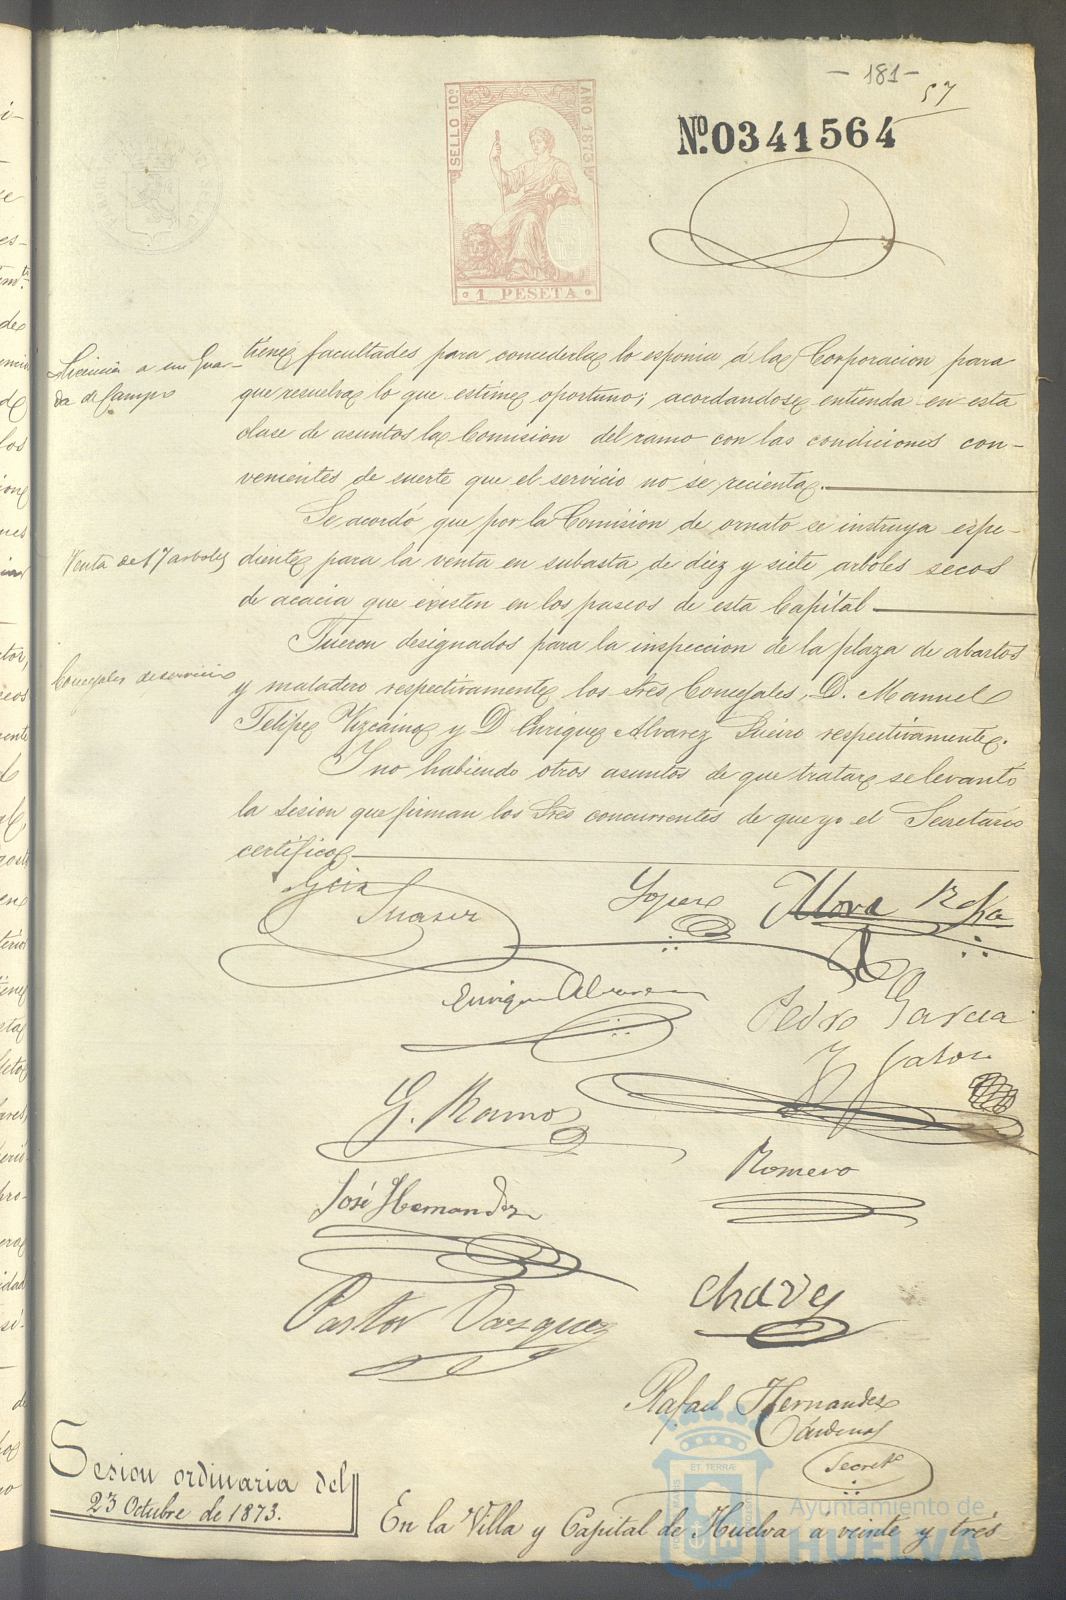 - 181 -
57
SELLO 10º
AÑO 1873
1 PESETA
Nº. 0341564
Licencia a un Guar-
da de Campo
tiene facultades para concederla lo esponia á la Corporacion para
que resuelva lo que estime oportuno; acordandose entienda en esta
clase de asuntos la Comision del ramo con las condiciones con-
venientes de suerte que el servicio no se recienta.
Se acordó que por la Comision de ornato se instruya espe-
Venta de 17 arboles
diente para la venta en subasta, de diez y siete arboles secos
de acacia que existen en los paseos de esta Capital
Fueron designados para la inspeccion de la plaza de abastos
Concejales de servicio
y matadero respectivamente los Sres Concejales, D. Manuel
Felipe Vizcaino y D Enrique Alvarez Sueiro respectivamente.
Y no habiendo otros asuntos de que tratar se levantó
la sesion que firman los Sres concurrentes de que yo el Secretario
certifico
Garcia
Suarez
Lopez
Mora
Enrique Alvarez
Pedro Garcia
G. Ramos
Romero
José Hernandez
Chaves
Pastor Vazquez
Rafael Hernandez
Cárdenas
Secreto
Sesion ordinaria del
23 Octubre de 1873.
En la Villa y Capital de Huelva a veinte y trés
Ayuntamiento de
HUELVA